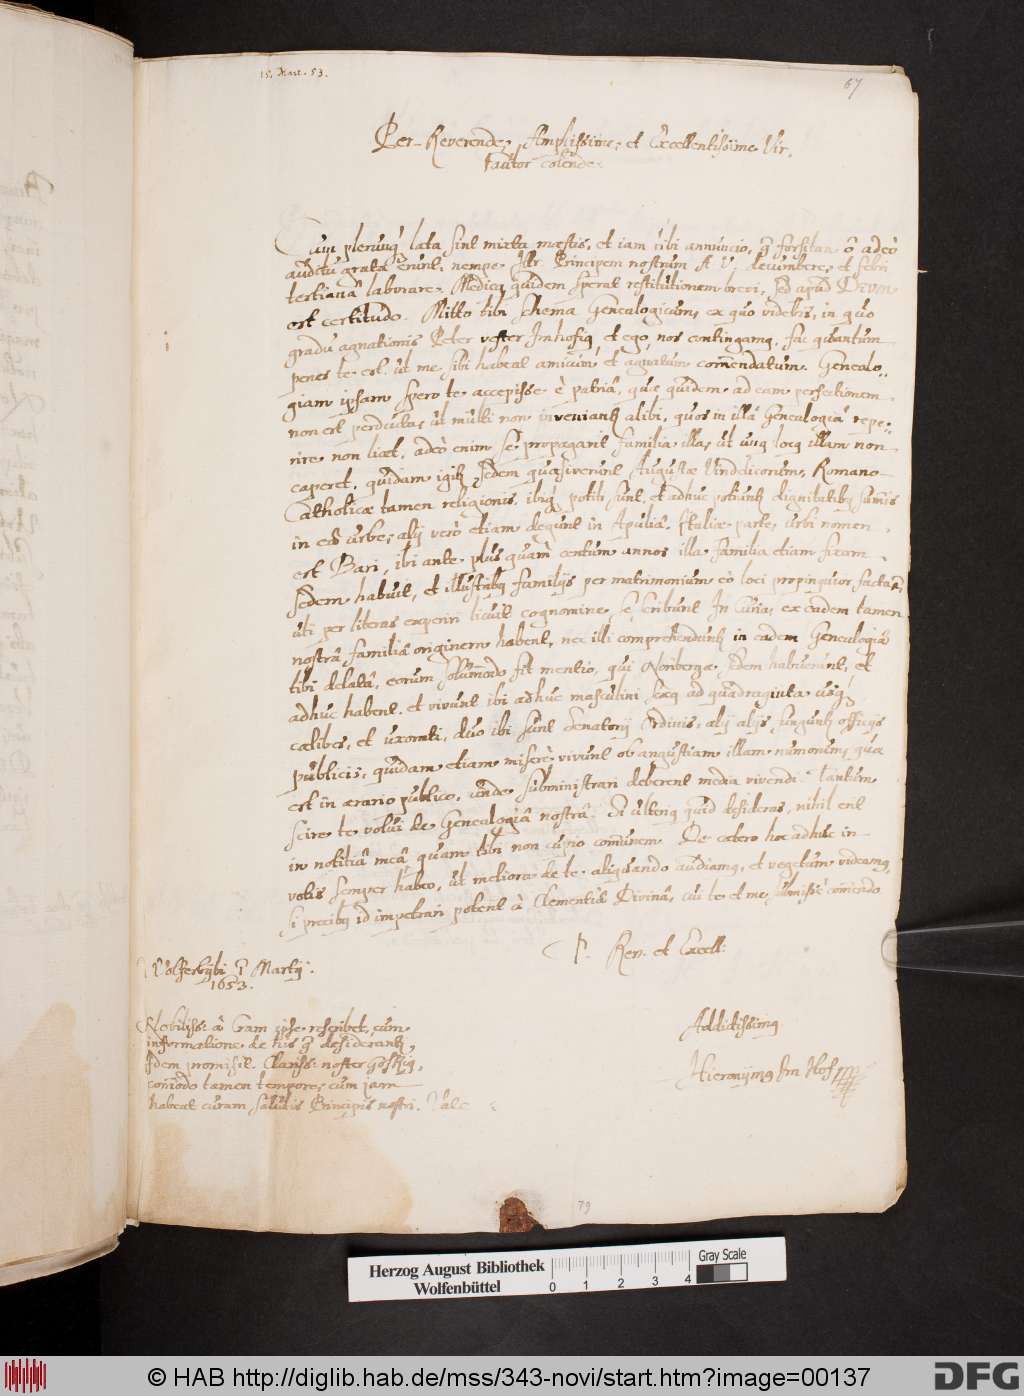 15. Mart. 53.
67
Per-Reverende, Amplissime, et Excellentissime Vir,
Fautor colende.
Cum plerumq; laeta sint mixta maestis, et iam tibi annuncio, q; forsitan ô adeò
auditu grata erunt, nempe Principem nostrum A. U. decumbere, et febri
tertianâ laborare. Medicq; quidem sperat restitutionem brevi, sed apud Deum
est certitudo. Mitto tibi schema Genealogicum, ex quo videbis, in quo
gradu agnationis Pater vester Imhofiq; et ego, nos contingamq; fac quantum
penes te est, ut me sibi habeat amicum et agnatum comendatum. Genealo-
giam ipsam spero te accepisse è patriâ, quae quidem ad eam perfectionem
non est perducta, ut multi non inveniantr alibi, quos in illâ Genealogiâ repe-
rire non licet, adeò enim se propagavit familia illa, ut unq; locq; illam non
caperet, quidam igitr sedem quaesiverunt Augustae Vindelicorum, Romano-
Catholicae tamen religionis, ibiq; potiti sunt, et adhuc potiuntr dignitatibq; sumis
in eâ urbe, alij verò etiam degunt in Apuliâ, Italiae parte, urbi nomen
est Bari, ibi ante plus quam centum annos illa familia etiam fixam
sedem habuit, et illustribq; familijs per matrimonium eò loci propinquior facta,
uti per literas experiri licuit cognomine se scribunt In Curia, ex eadem tamen
nostrâ familiâ originem habent, nec illi comprehenduntr in eadem Genealogiâ
tibi delatâ, eorum solumodo fit mentio, qui Noribergae sedem habuerunt, et
adhuc habent, et vivunt ibi adhuc masculini sexq; ad quadraginta usq;
caelibes, et uxorati, duo ibi sunt Senatorij Ordinis, alij alijs funguntr officijs
publicis, quidam etiam miserè vivunt ob angustiam illam numorum, quae
est in aerario publico, unde subministrari deberent media vivendi. Tantum
scire te volui de Genealogiâ nostrâ. Si ulteriq; quid desideras, nihil erit
in notitiâ meâ, quam tibi non cupio comunem. De caetero hoc adhuc in
votis semper habeo, ut meliora de te aliquando audiamq; et vegetum videamq;,
si precibq; id impetrari potest à Clementiâ Divinâ, cui te et me submissè comendo.
P. Rev. et Excell:
Wolferbÿti Martij.
1653.
Nobiliss: à Gram ipse rescribet, cum
informatione de his q; desiderantr,
idem promisit Clariss: noster
comodo tamen tempore, cum jam
habeat curam salutis Principis nostri. Vale
Addictissimq;
Hieronijmq; Im Hof
79
Herzog August Bibliothek
Wolfenbüttel
0 1 2 3 4
Gray Scale
© HAB http://diglib.hab.de/mss/343-novi/start.htm?image=00137
DFG